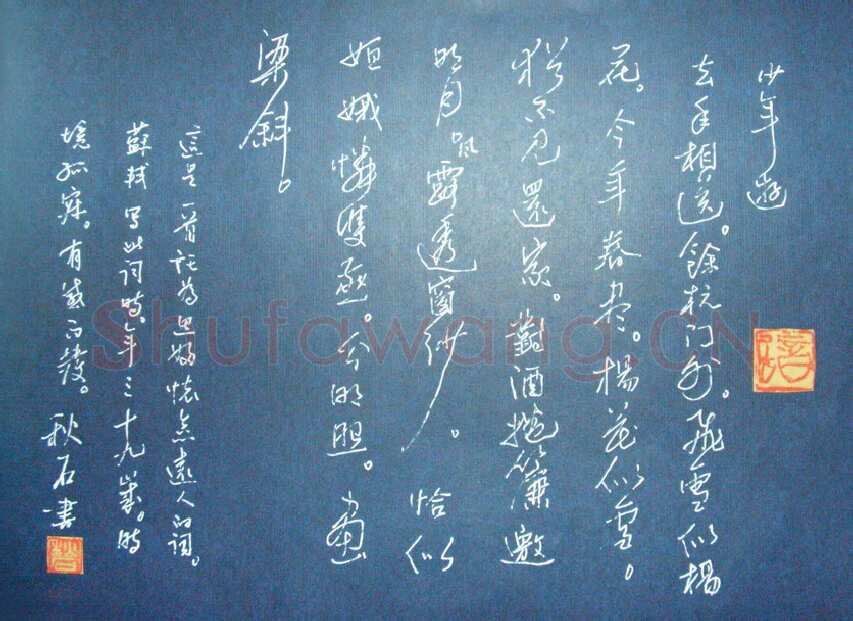 少年遊
去年相送。餘杭门外。飛雪似楊
花。今年春尽。楊花似雪。
猶不见還家。對酒捲簾邀
明月。風露透窗紗。恰似
姮娥憐雙燕。分明照。畫
梁斜。
這是一首託為思婦怀念遠人的词。
蘇軾写此词時。年三十九歲。時
境孤寂。有感而發。
秋石書
Shufawang.CN